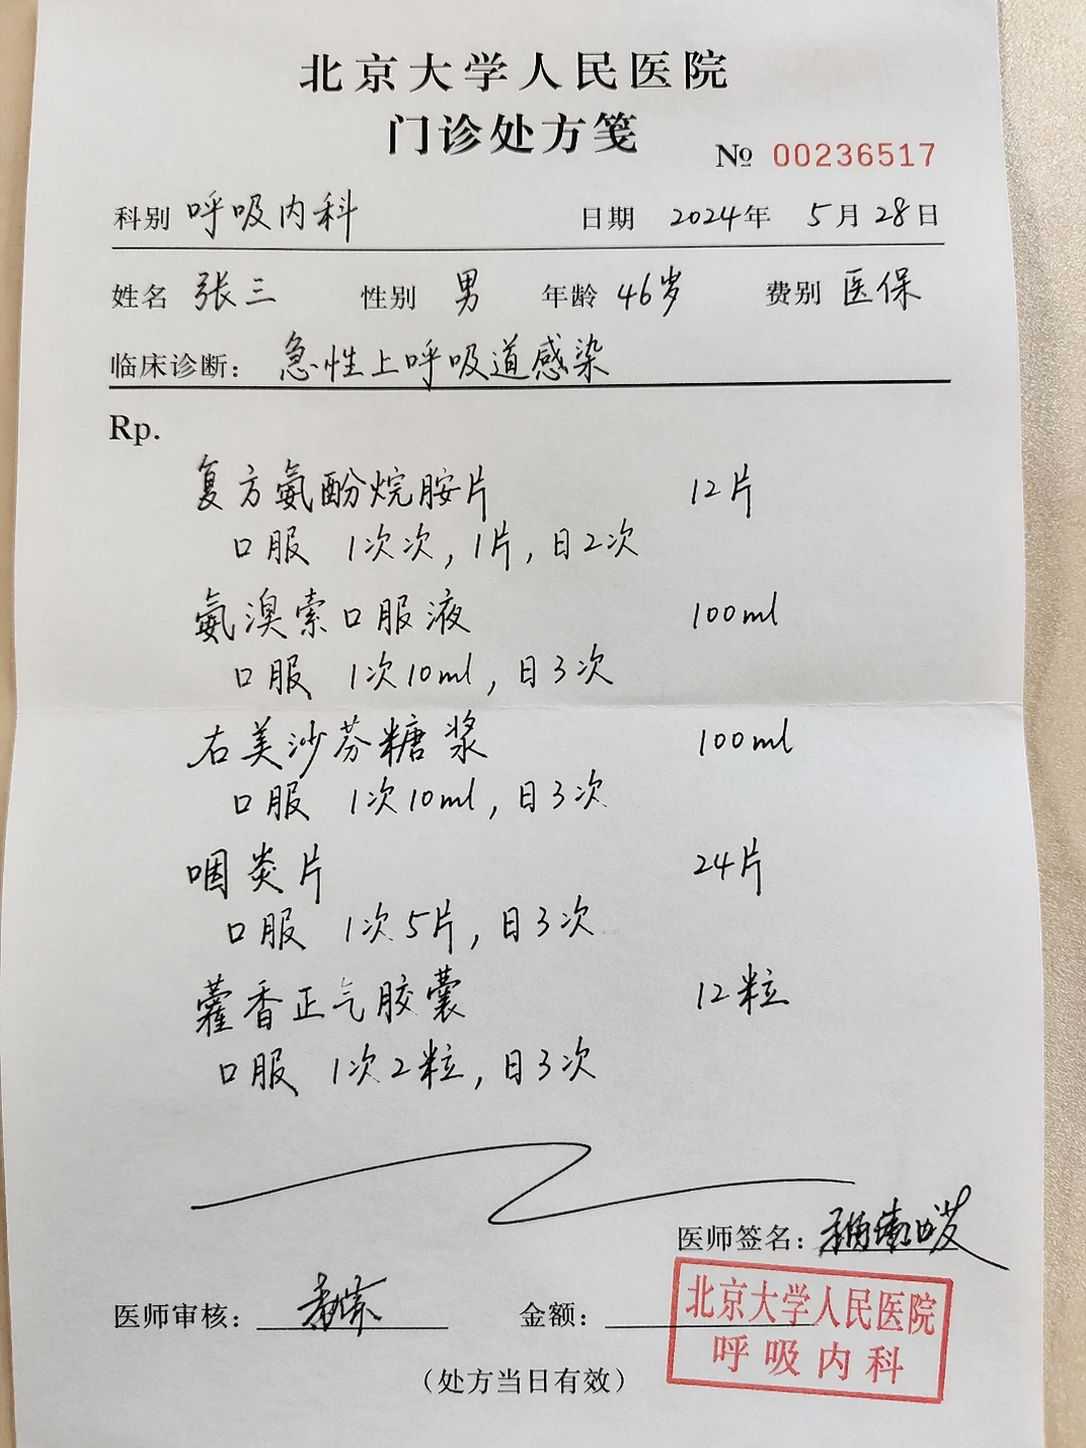 北京大学人民医院
门诊处方笺
№ 00236517
科别 呼吸内科 日期 2024年 5月28日
姓名 张三 性别 男 年龄 46岁 费别 医保
临床诊断: 急性上呼吸道感染
Rp.
复方氨酚烷胺片 12片
口服 1次次, 1片, 日2次
氨溴索口服液 100ml
口服 1次10ml, 日3次
右美沙芬糖浆 100ml
口服 1次10ml, 日3次
咽炎片 24片
口服 1次5片, 日3次
藿香正气胶囊 12粒
口服 1次2粒, 日3次
医师签名:
医师审核: 金额:
北京大学人民医院
呼吸内科
(处方当日有效)